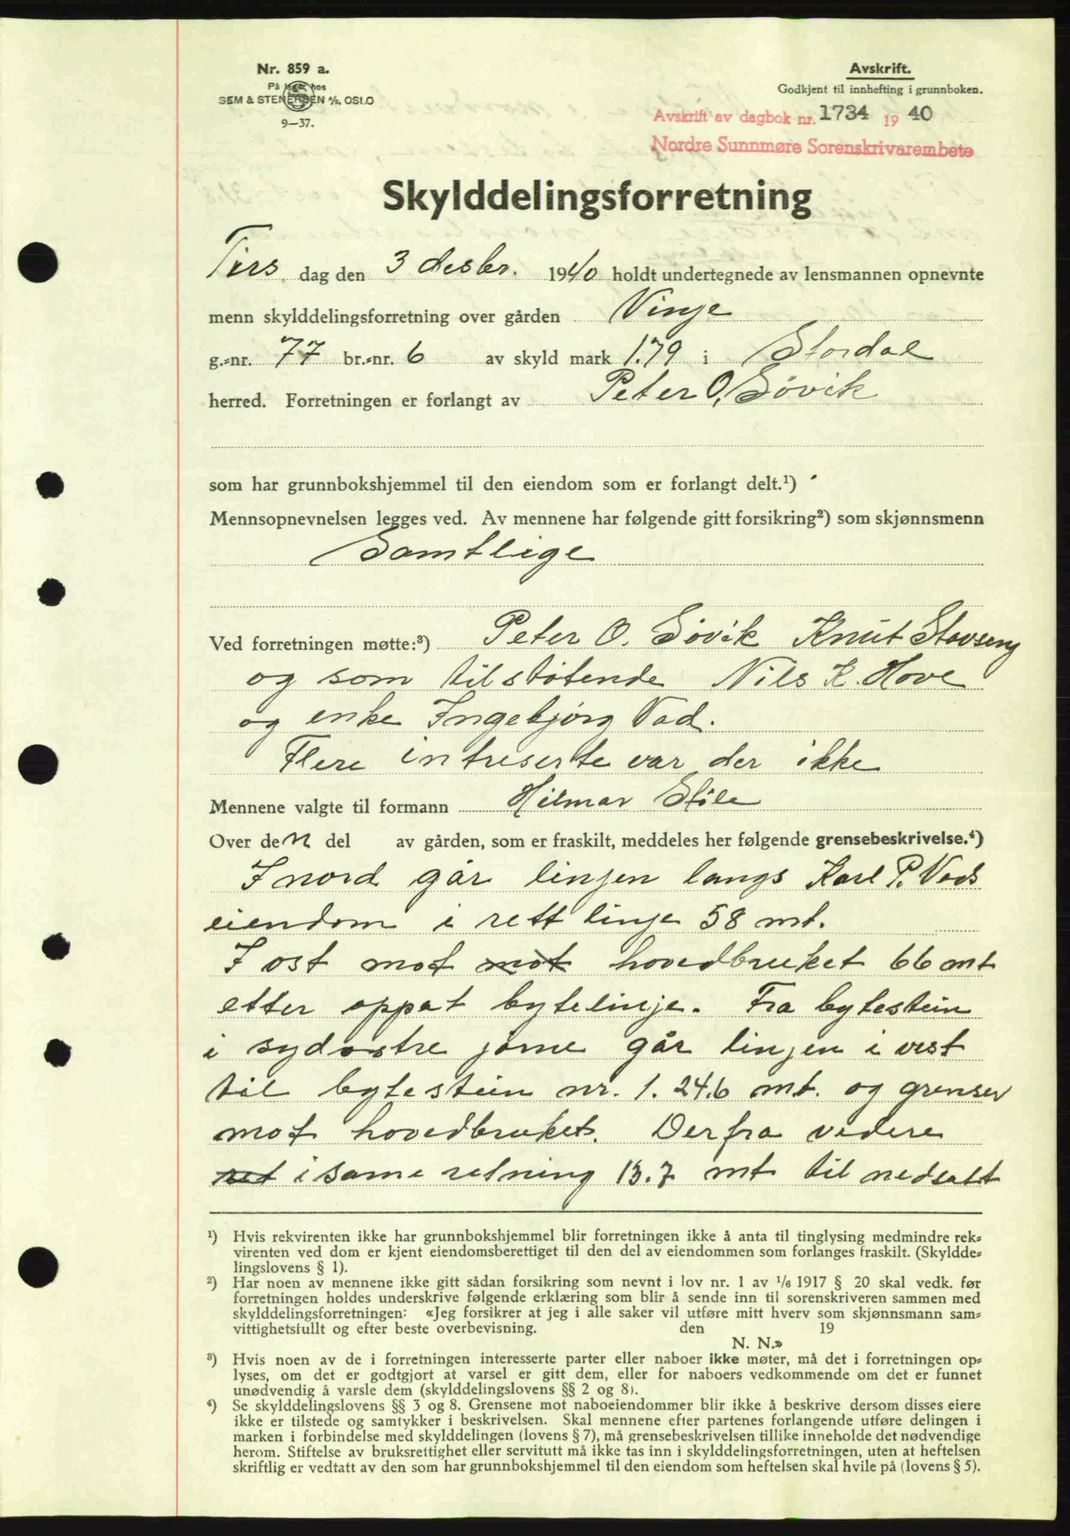 Nr. 859 a.
På lager hos
SEM & STENERSEN A/S, OSLO
9—37.
Avskrift.
Godkjent til innhefting i grunnboken.
Avskrift av dagbok nr. 1734 1940
Nordre Sunnmøre Sorenskrivarembete
Skylddelingsforretning
Tirs dag den 3 desbr. 1940 holdt undertegnede av lensmannen opnevnte
menn skylddelingsforretning over gården Vinje
g.-nr. 77 br.-nr. 6 av skyld mark 1.79 i Stordal
herred. Forretningen er forlangt av Peter O. Søvik
som har grunnbokshjemmel til den eiendom som er forlangt delt.¹)
Mennsopnevnelsen legges ved. Av mennene har følgende gitt forsikring²) som skjønnsmenn
Samtlige
Ved forretningen møtte:³) Peter O. Søvik Knut Stavseng
og som tilstøtende Nils K. Hove
og enke Ingebjørg Vad.
Flere intreserte var der ikke
Mennene valgte til formann Hilmar Støle
Over den del av gården, som er fraskilt, meddeles her følgende grensebeskrivelse.⁴)
I nord går linjen langs Karl P. Vads
eiendom i rett linje 58 mt.
I øst mot mot hovedbruket 66 mt
etter oppat bytelinje. Fra bytestein
i sydøstre jørne går linjen i vest
til bytestein nr. 1. 24.6 mt. og grenser
mot hovedbruket. Derfra vedere
ret i same retning 13.7 mt til nedsatt
¹) Hvis rekvirenten ikke har grunnbokshjemmel blir forretningen ikke å anta til tinglysing medmindre rek-
virenten ved dom er kjent eiendomsberettiget til den del av eiendommen som forlanges fraskilt. (Skyldde-
lingslovens § 1).
²) Har noen av mennene ikke gitt sådan forsikring som nevnt i lov nr. 1 av 1/6 1917 § 20 skal vedk. før
forretningen holdes underskrive følgende erklæring som blir å sende inn til sorenskriveren sammen med
skylddelingsforretningen: «Jeg forsikrer at jeg i alle saker vil utføre mitt hverv som skjønnsmann sam-
vittighetsfullt og efter beste overbevisning. den 19
N. N.»
³) Hvis noen av de i forretningen interesserte parter eller naboer ikke møter, må det i forretningen op-
lyses, om det er godtgjort at varsel er gitt dem, eller for naboers vedkommende om det er funnet
unødvendig å varsle dem (skylddelingslovens §§ 2 og 8).
⁴) Se skylddelingslovens §§ 3 og 8. Grensene mot naboeiendommer blir ikke å beskrive dersom disses eiere
ikke er tilstede og samtykker i beskrivelsen. Skal mennene efter partenes forlangende utføre delingen i
marken i forbindelse med skylddelingen (lovens § 7), må grensebeskrivelsen tillike inneholde det nødvendige
herom. Stiftelse av bruksrettighet eller servitutt må ikke tas inn i skylddelingsforretningen, uten at heftelsen
skriftlig er vedtatt av den som har grunnbokshjemmel til den eiendom som heftelsen skal hvile på (lovens § 5).